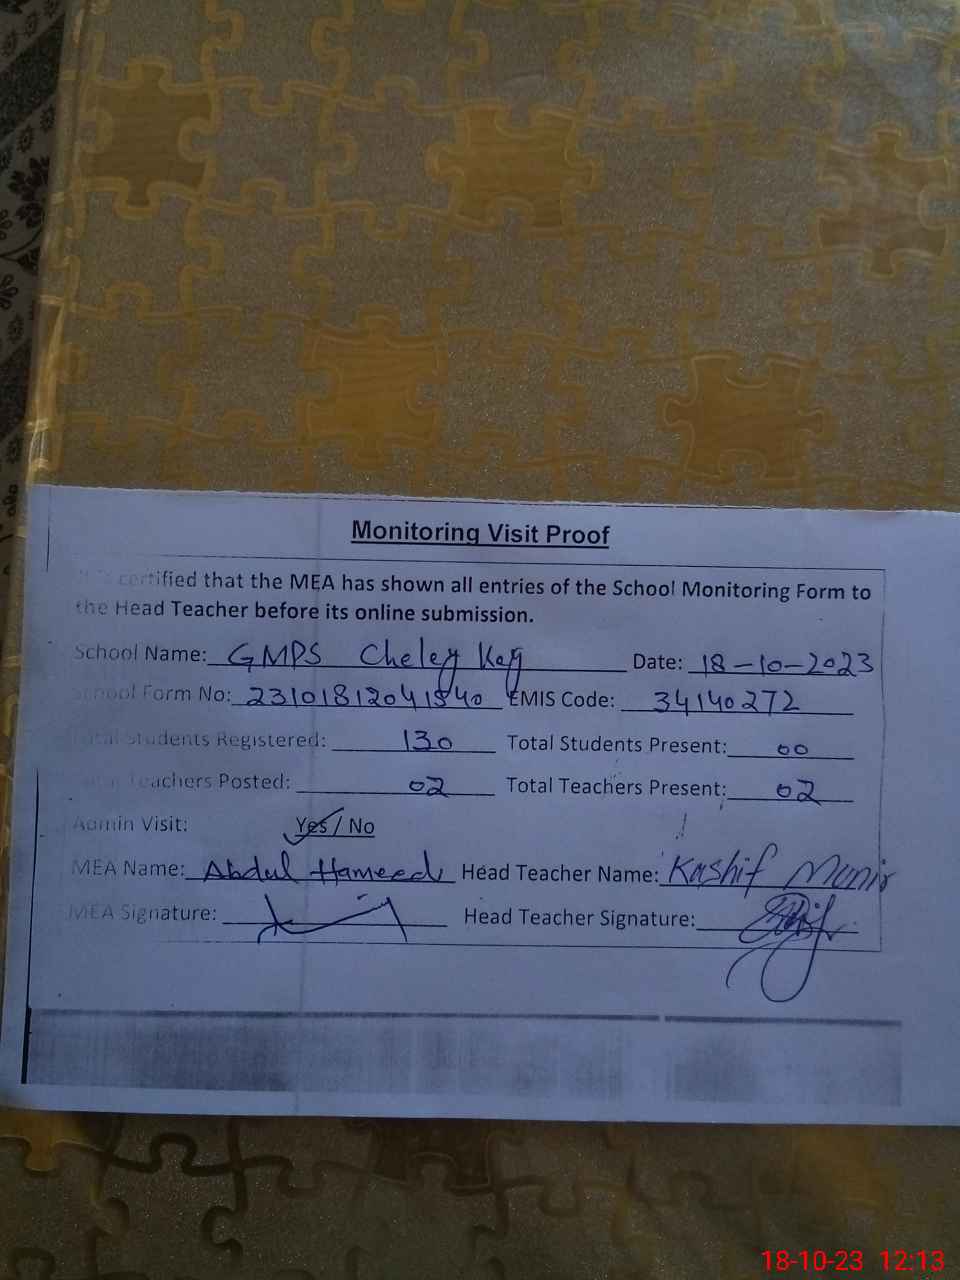 Monitoring Visit Proof
It is certified that the MEA has shown all entries of the School Monitoring Form to
the Head Teacher before its online submission.
School Name: GMPS Cheley Key Date: 18-10-2023
School Form No: 23101812041540 EMIS Code: 34140272
Total Students Registered: 130 Total Students Present: 00
Total Teachers Posted: 02 Total Teachers Present: 02
Admin Visit: Yes / No
MEA Name: Abdul Hameed Head Teacher Name: Kashif Monir
MEA Signature: Head Teacher Signature:
18-10-23 12:13